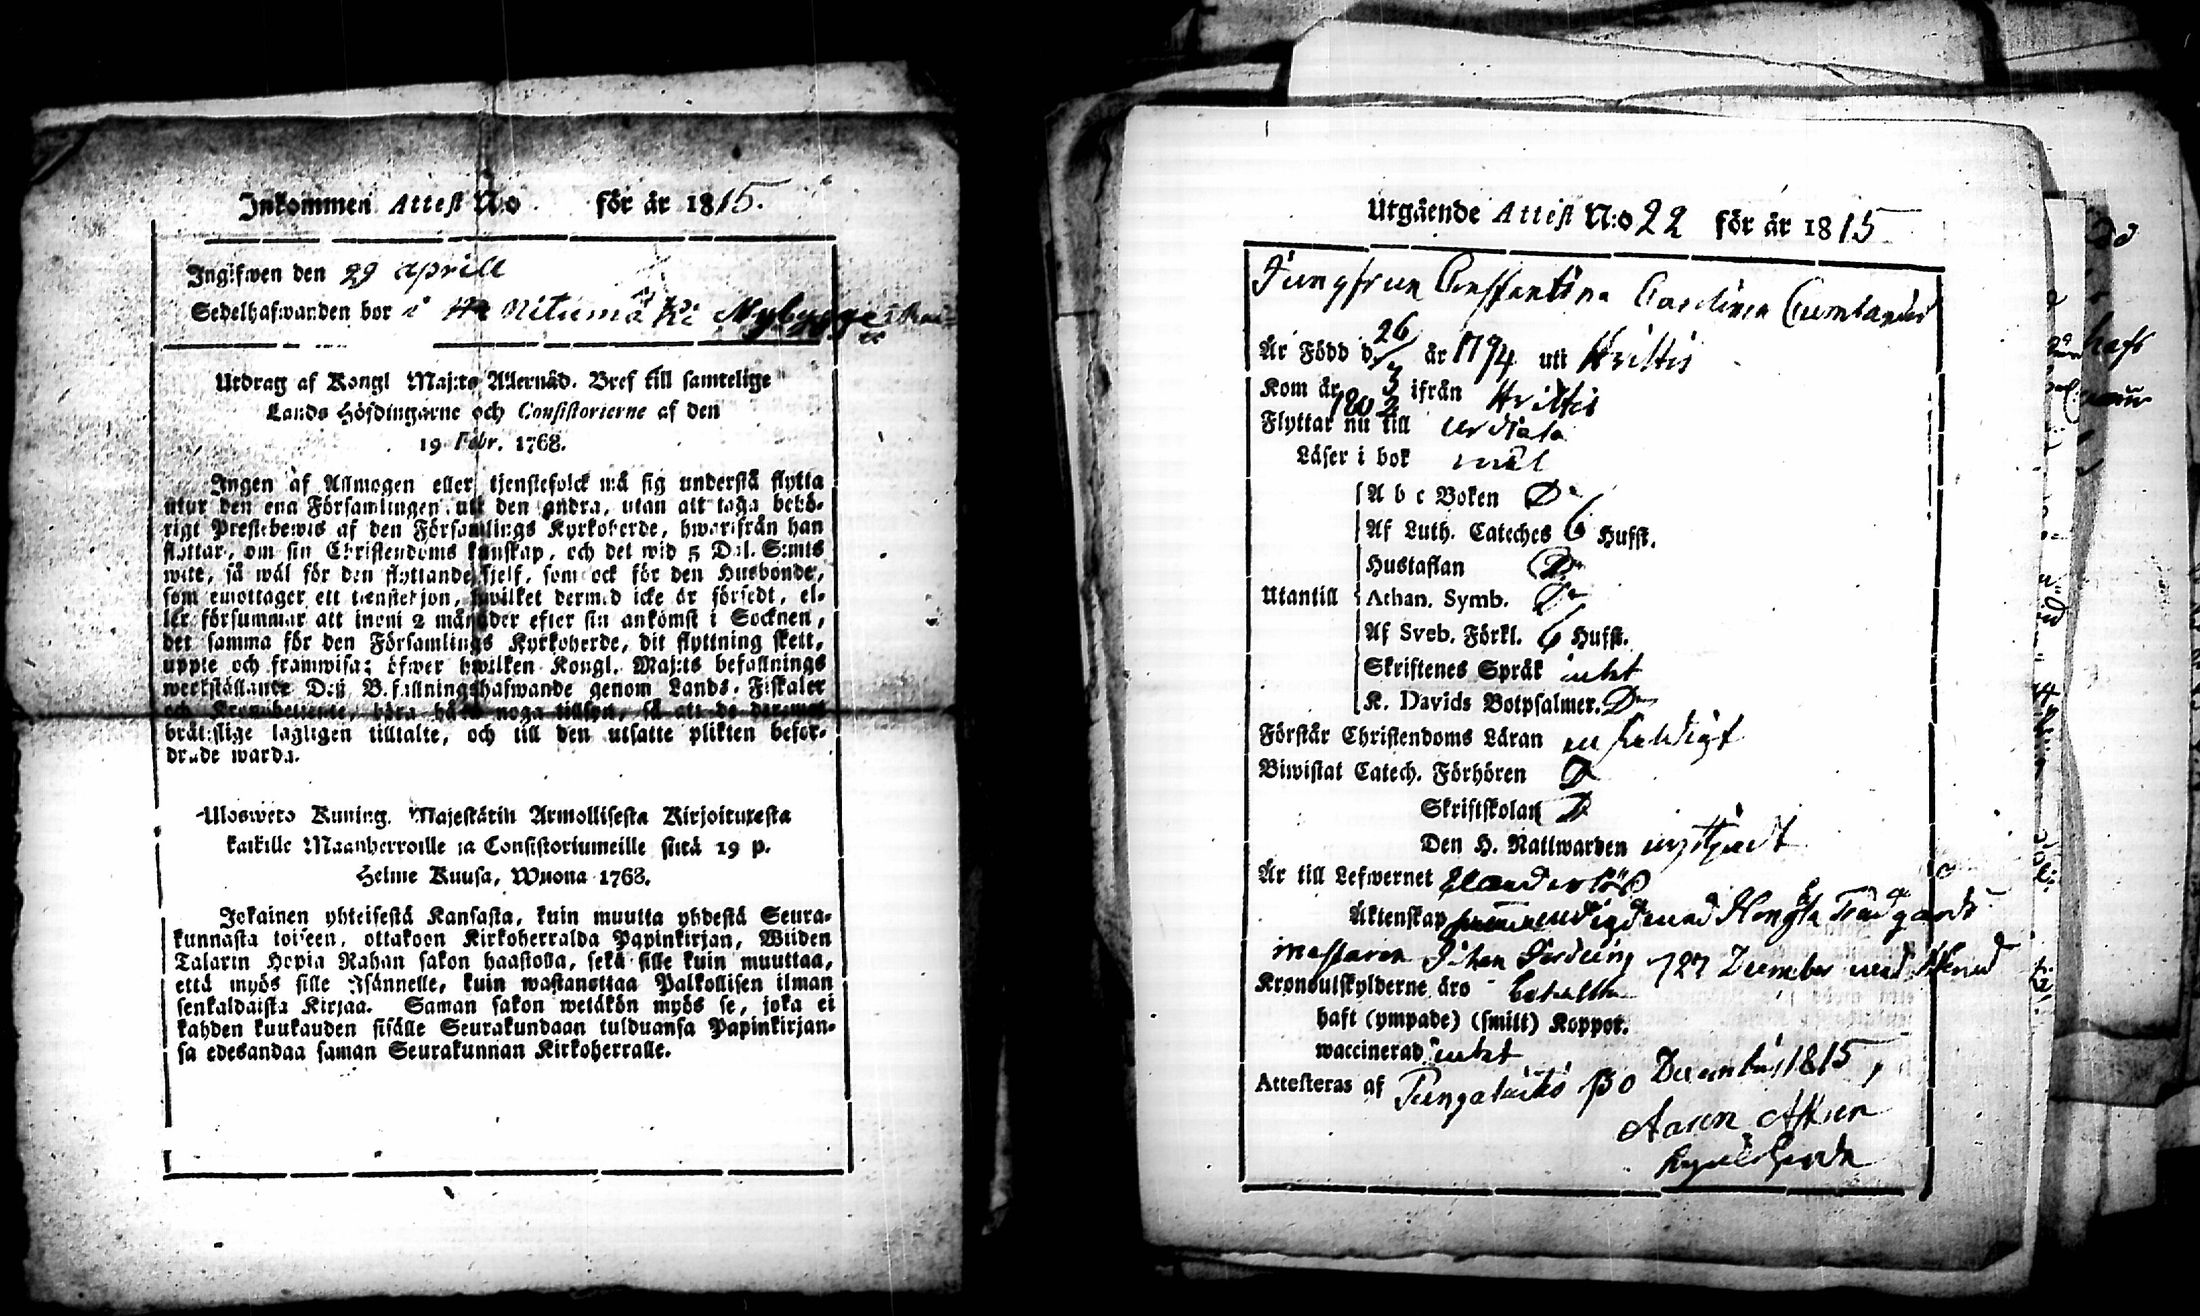 Inkommen Attest N:o för år 1815.
Ingifwen den 29 aprill
Sedelhafwanden bor i Nitumäki Nybygge
Utdrag af Kongl Maj:ts Allernåd. Bref till samtelige
Lands Höfdingarne och Consistorierne af den
19 Febr. 1768.
Ingen af Allmogen eller tjenstefolck må sig understå flytta
utur den ena Församlingen uti den andra, utan att taga behö-
rigt Prestebewis af den Församlings Kyrkoherde, hwarifrån han
flyttar, om sin Christendoms kunskap, och det wid 5 Dal. S:mts
wite, så wäl för den flyttande sjelf, som ock för den Husbonde,
som emottager ett tienstehjon, hwilket dermed icke är försedt, el-
ler försummar att inom 2 månader efter sin ankomst i Socknen,
det samma för den Församlings Kyrkoherde, dit flyttning skett,
uppte och framwisa; öfwer hwilken Kongl. Maj:ts befallnings
werkställande Deß Befallningshafwande genom Lands-Fiskaler
och Kronobetiente, böra hafwa noga tillsyn, så att de deremot
brätslige lagligen tilltalte, och till den utsatte plikten befor-
drade warda.
Uloswero Kuning. Majestätin Armollisesta Kirjoituxesta
kaikille Maanherroille ja Consistoriumeille siitä 19 p.
Helme Kuusa, Wuona 1768.
Jokainen yhteisestä Kansasta, kuin muutta yhdestä Seura-
kunnasta toiseen, ottakoon Kirkoherralda Papinkirjan, Wiiden
Talarin Hopia Rahan sakon haastolla, sekä sille kuin muuttaa,
että myös sille Isännelle, kuin wastanottaa Palkollisen ilman
senkaldaista Kirjaa. Saman sakon wetäkön myös se, joka ei
kahden kuukauden sisälle Seurakundaan tulduansa Papinkirjan-
sa edesandaa saman Seurakunnan Kirkoherralle.
Utgående Attest N:o 22 för år 1815
Jungfrun Constantina Carolina Cumlander
Är Född d. 26/3 år 1794 uti Kvittis
Kom år 1802 ifrån Kvittis
Flyttar nu till Urdiala
Läser i bok wäl
A b c Boken Do
Af Luth. Cateches 6 Hufst.
Hustaflan Do
Utantill Athan. Symb. Do
Af Sveb. Förkl. 6 Hufst.
Skriftenes Språk intet
K. Davids Botpsalmer. Do
Förstår Christendoms Läran
Biwistat Catech. Förhören D
Skriftskolan D
Den H. Nattwarden
Är till Lefwernet
Äktenskap med Trädgårds
mästaren Johan December med
Kronoutskylderne äro betalta
haft (ympade) (smitt) Koppor.
waccinerad intet
Attesteras af Pungalaitio 30 December 1815,
Aaron